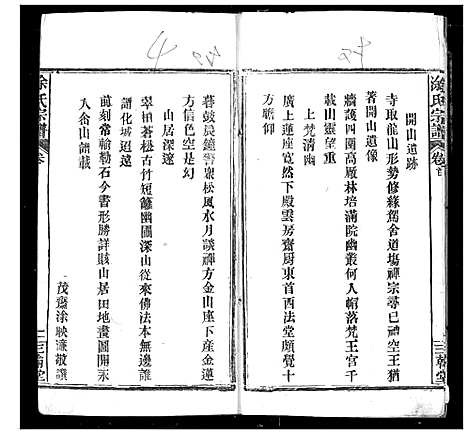 涂氏宗譜
卷首
三韓堂
開山道跡
寺取龍山形勢修緣駕舍道場禪宗尋已神空王猶
著開山道像
牆護四圍高厰林培滿院幽叢何人帽落梵王宮千
載山靈望重
上梵清幽
廣上蓮座寬然下殿雲房齋厨東首西法堂頗覺十
方瞻仰
暮鼓晨鐘警衆松風水月談禪方金山座下產金蓮
方信色空是幻
山居深遠
翠柏蒼松古竹短籬幽圃深山從來佛法本無邊證
譜化城迢遠
前刻常輸勒石今書形勝詳賅山居田地畫圖開示
入余山譜載
茂齋涂映濂敬譔
涂氏宗譜
卷
三韓堂